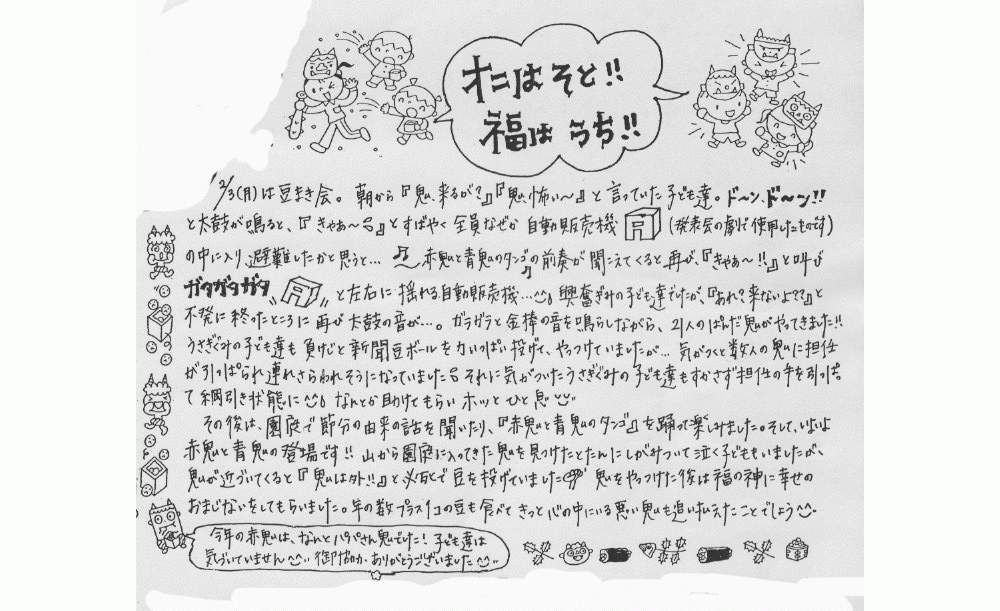 オニは そと!!
福は うち!!
2/3(月)は豆まき会。朝から『鬼、来るが?』『鬼、怖い〜』と言っていた子ども達。ド〜ン、ド〜ン!!
と太鼓が鳴ると、『きゃあ〜』とすばやく全員なぜか自動販売機(発表会の劇で使用したものです)
の中に入り避難したかと思うと… 赤鬼と青鬼のタンゴの前奏が聞こえてくると再び、『きゃあ〜!!』と叫び
ガタガタガタ と左右に揺れる自動販売機… 興奮ぎみの子ども達でしたが、『あれ?来ないよ??』と
不発に終ったところに再び太鼓の音が…。ガラガラと金棒の音を鳴らしながら、21人のぱんだ鬼がやってきました!!
うさぎぐみの子ども達も負けじと新聞豆ボールを力いっぱい投げて、やっつけていましたが… 気がつくと数人の鬼に担任
が引っぱられ連れさらわれそうになっていました。それに気がついたうさぎぐみの子ども達もすかさず担任の手を引っぱっ
て綱引き状態に なんとか助けてもらいホッとひと息
その後は、園庭で節分の由来の話を聞いたり、『赤鬼と青鬼のタンゴ』を踊って楽しみました。そして、いよいよ
赤鬼と青鬼の登場です!! 山から園庭に入ってきた鬼を見つけたとたんにしがみついて泣く子どももいましたが、
鬼が近づいてくると『鬼は外!!』と必死で豆を投げていました 鬼をやっつけた後は福の神に幸せの
おまじないをしてもらいました。年の数プラス1コの豆も食べてきっと心の中にいる悪い鬼も追い払えたことでしょう
今年の赤鬼は、なんとパパさん鬼でした! 子ども達は
気づいていません 御協力、ありがとうございました